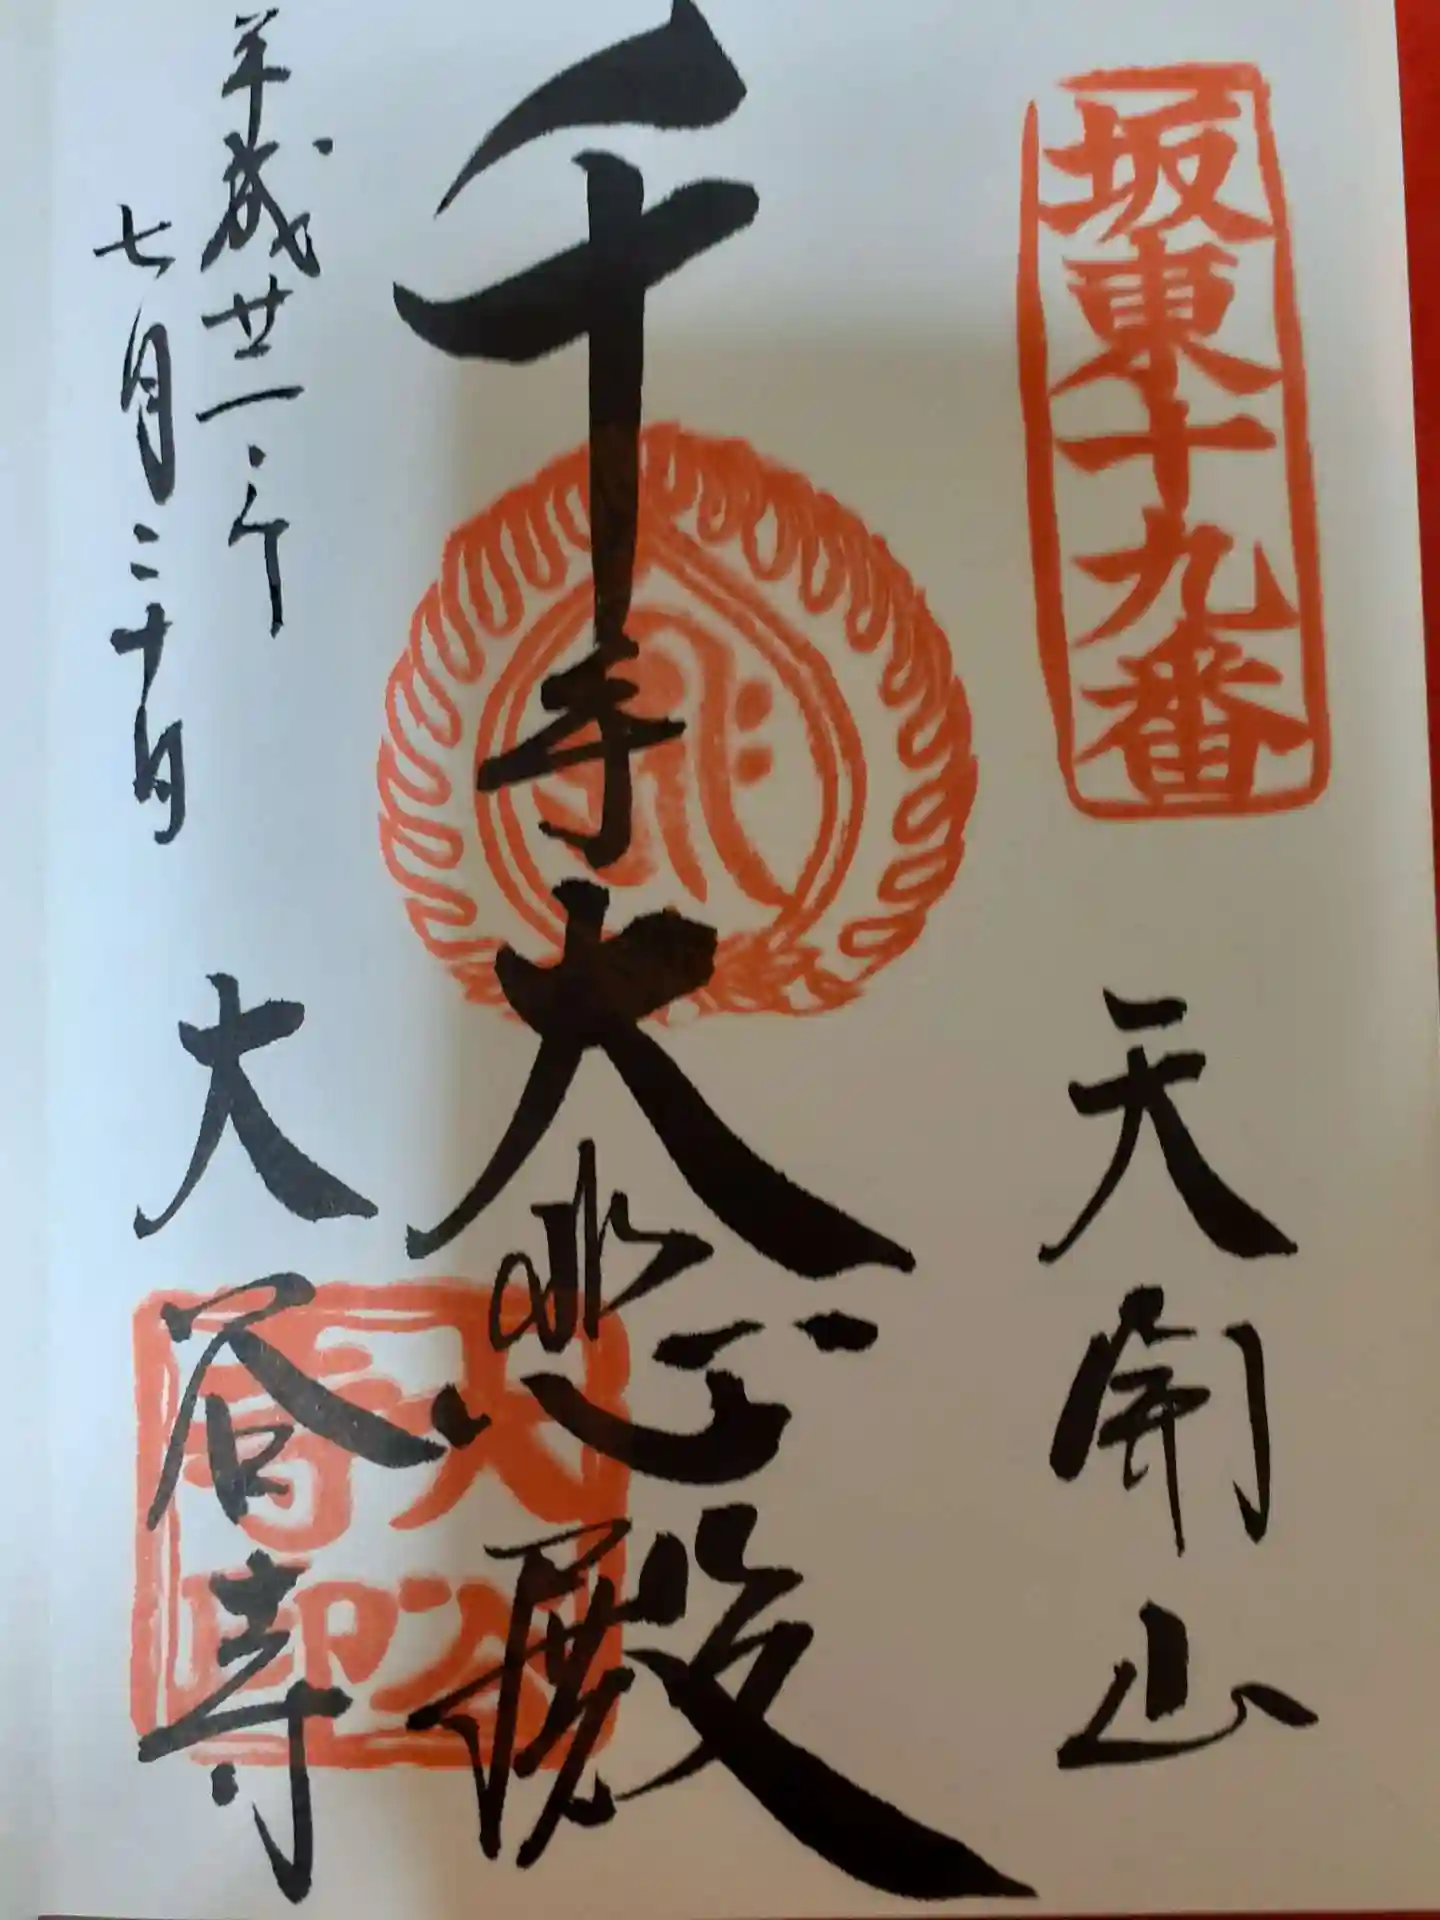 坂東十九番
天開山
千手大悲殿
平成廿一年
七月二十日
大谷寺
大谷寺印